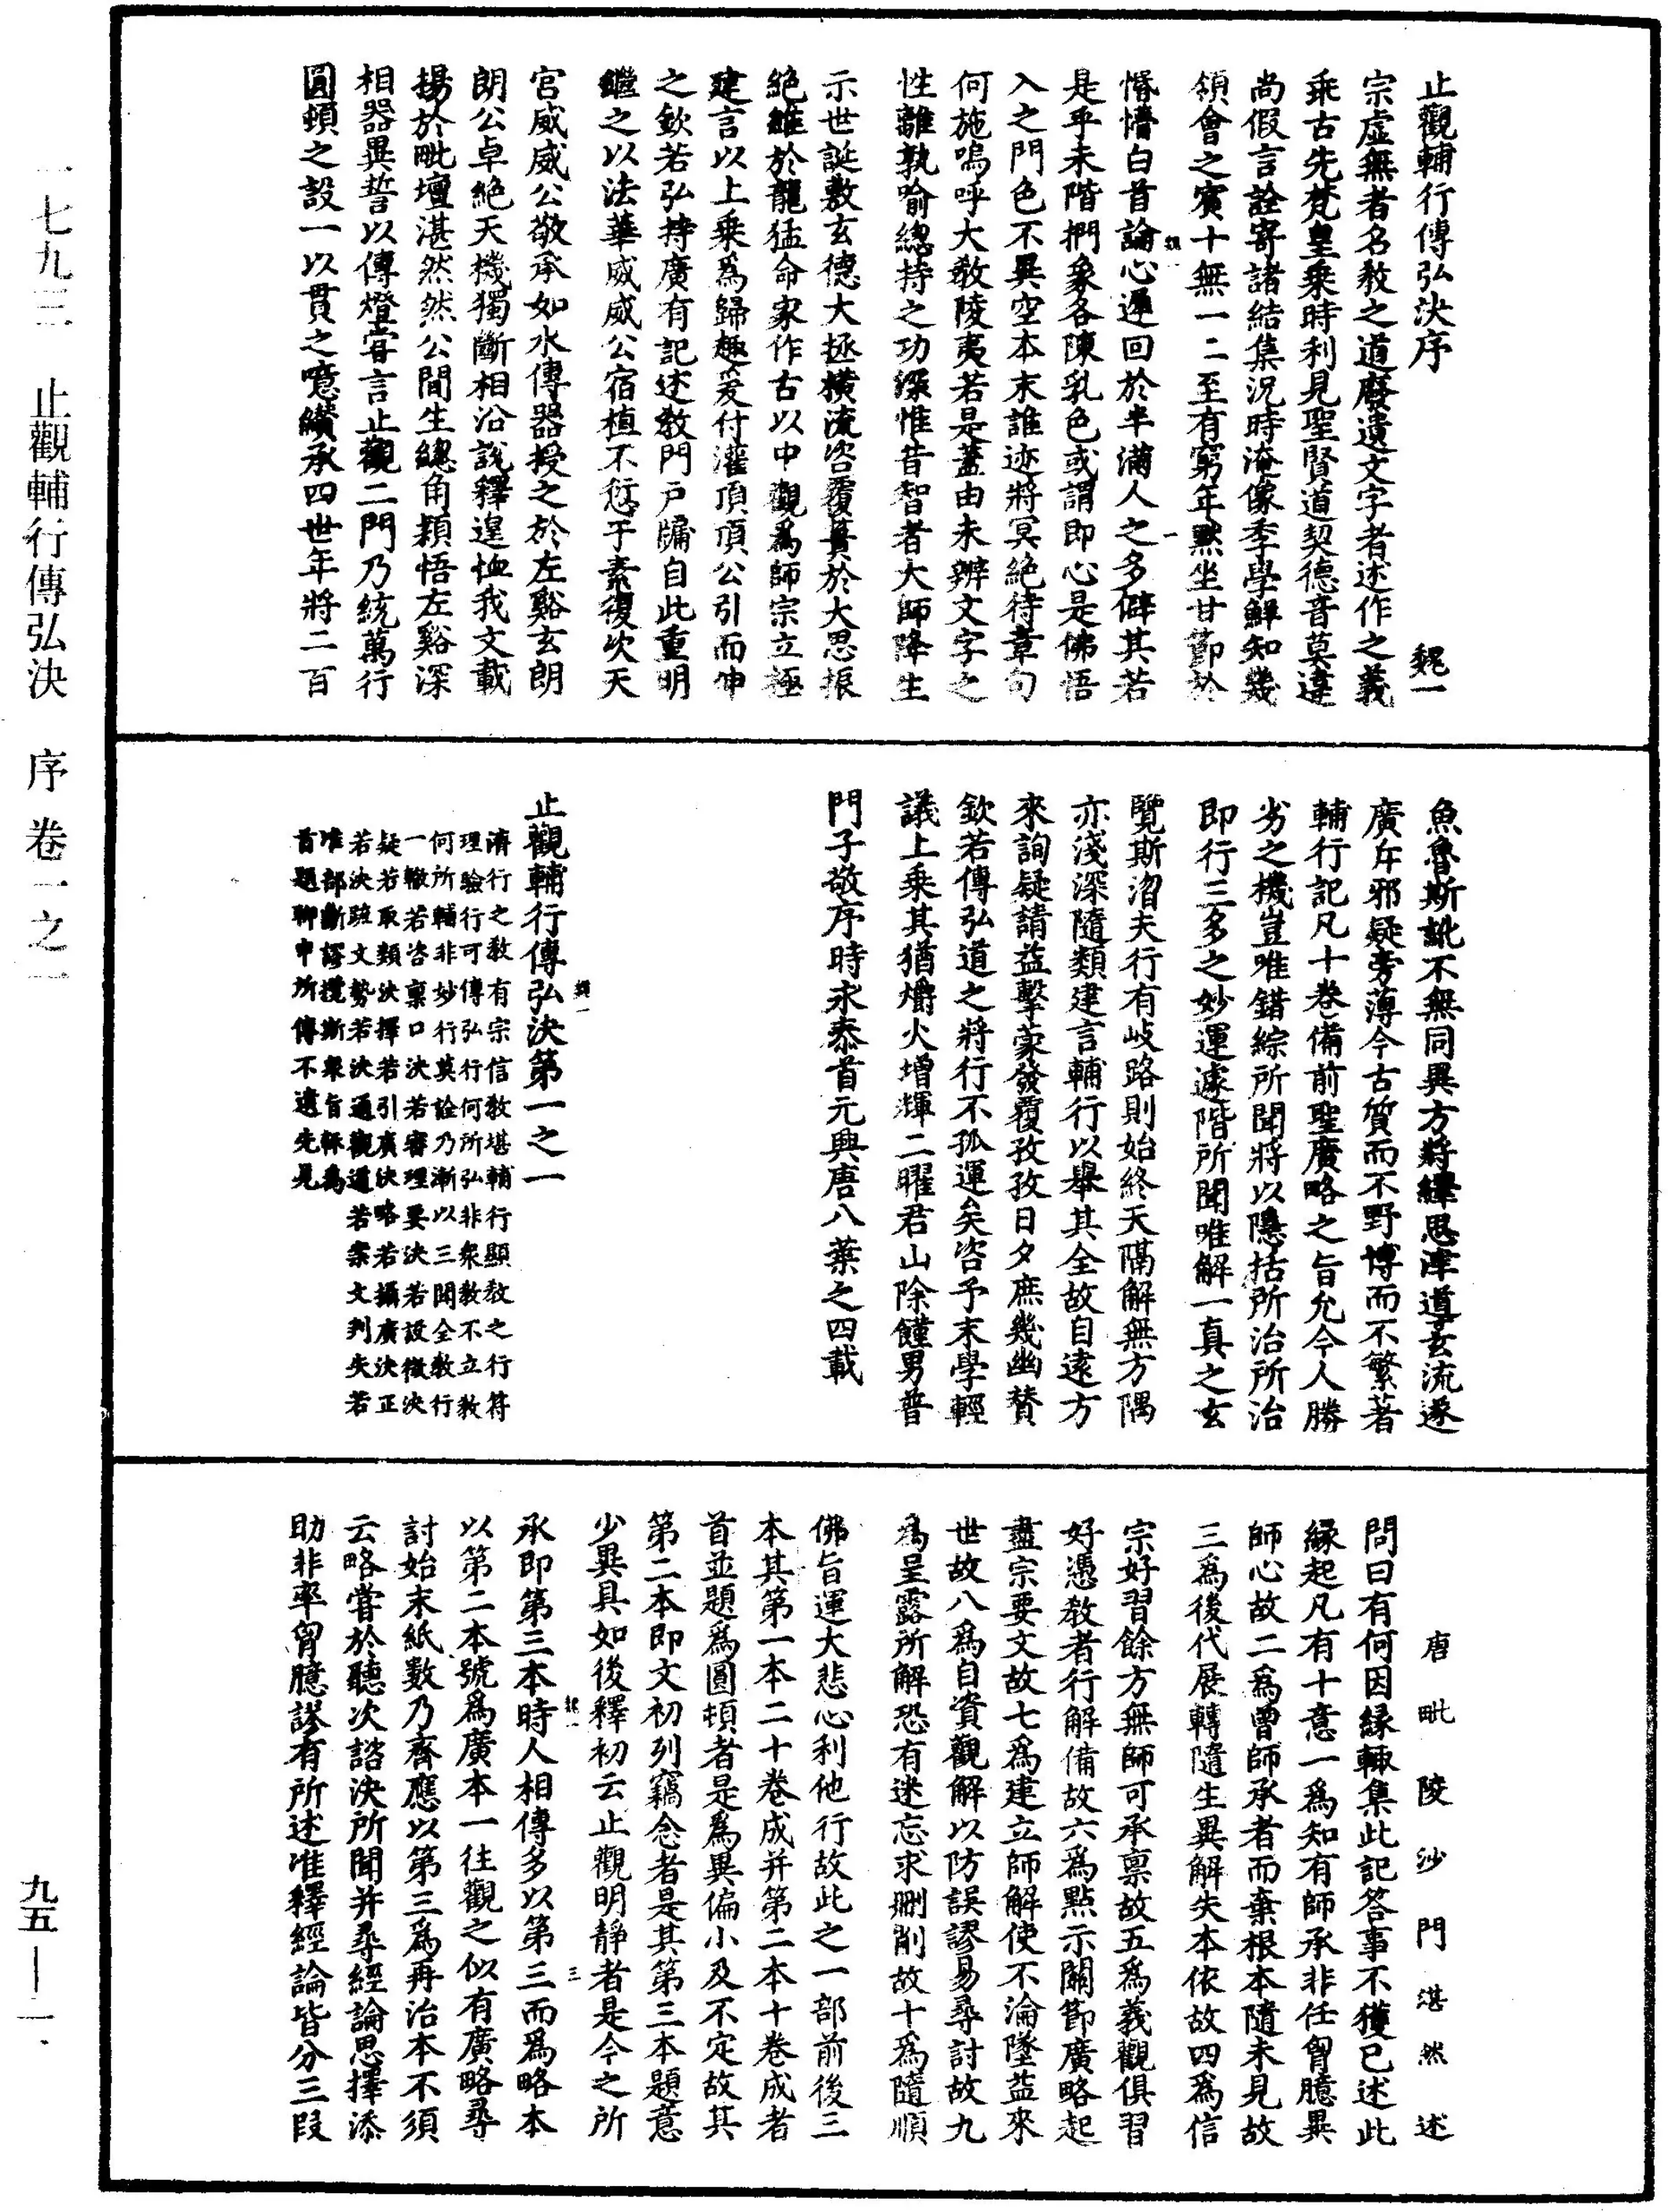 止觀輔行傳弘決序　魏一
宗虛無者名教之道廢遺文字者述作之義
乖古先梵皇乘時利見聖賢道契德音莫違
尚假言詮寄諸結集況時淹像季學鮮知幾
領會之賓十無一二至有窮年默坐甘節於
惛懵白首論心遲回於半滿人之多僻其若
是乎未階捫象各陳乳色或謂即心是佛悟
入之門色不異空本末誰迹將冥絕待章句
何施嗚呼大教陵夷若是蓋由未辨文字之
性離孰喻總持之功深惟昔智者大師降生
示世誕敷玄德大拯橫流咨覆簣於大思振
絕維於龍猛命家作古以中觀為師宗立極
建言以上乘為歸趣爰付灌頂頂公引而伸
之欽若弘持廣有記述教門戶牖自此重明
繼之以法華威威公宿植不愆于素復次天
宮威威公敬承如水傳器授之於左谿玄朗
朗公卓絕天機獨斷相沿說釋遑恤我文載
揚於毗壇湛然然公間生總角穎悟左谿深
相器異誓以傳燈甞言止觀二門乃統萬行
圓頓之設一以貫之噫纘承四世年將二百
魚魯斯訛不無同異方將繹思津導玄流遂
廣斥邪疑旁薄今古質而不野博而不繁著
輔行記凡十卷備前聖廣略之旨允今人勝
劣之機豈唯錯綜所聞將以隱括所治所治
即行三多之妙運遽階所聞唯解一真之玄
覽斯洎夫行有岐路則始終天隔解無方隅
亦淺深隨類建言輔行以舉其全故自遠方
來詢疑請益擊蒙發覆孜孜日夕庶幾幽贊
欽若傳弘道之將行不孤運矣咨予末學輕
議上乘其猶爝火增輝二曜君山除饉男普
門子敬序時永泰首元興唐八葉之四載
止觀輔行傳弘決第一之一
濟行之教有宗信教堪輔行顯教之行符
理驗行可傳弘行何所弘非眾教不立教
何所輔非妙行莫詮乃漸以三聞全教行
一轍若咨稟口決若審理要決若設徵決
疑若取類決擇若引廣決略若攝廣決正
若決疏文勢若決通觀道若案文判失若
准部斷謬攬斯眾旨輒為
首題聊申所傳不遠先見
唐毗陵沙門湛然述
問曰有何因緣輒集此記答事不獲已述此
緣起凡有十意一為知有師承非任胷臆異
師心故二為曾師承者而棄根本隨末見故
三為後代展轉隨生異解失本依故四為信
宗好習餘方無師可承稟故五為義觀俱習
好憑教者行解備故六為點示關節廣略起
盡宗要文故七為建立師解使不淪墜益來
世故八為自資觀解以防誤謬易尋討故九
為呈露所解恐有迷忘求刪削故十為隨順
佛旨運大悲心利他行故此之一部前後三
本其第一本二十卷成并第二本十卷成者
首並題為圓頓者是為異偏小及不定故其
第二本即文初列竊念者是其第三本題意
少異具如後釋初云止觀明靜者是今之所
承即第三本時人相傳多以第三而為略本
以第二本號為廣本一往觀之似有廣略尋
討始末紙數乃齊應以第三為再治本不須
云略甞於聽次諮決所聞并尋經論思擇添
助非率胷臆謬有所述准釋經論皆分三段
一七九三　止觀輔行傳弘決　序　卷一之一
九五—一